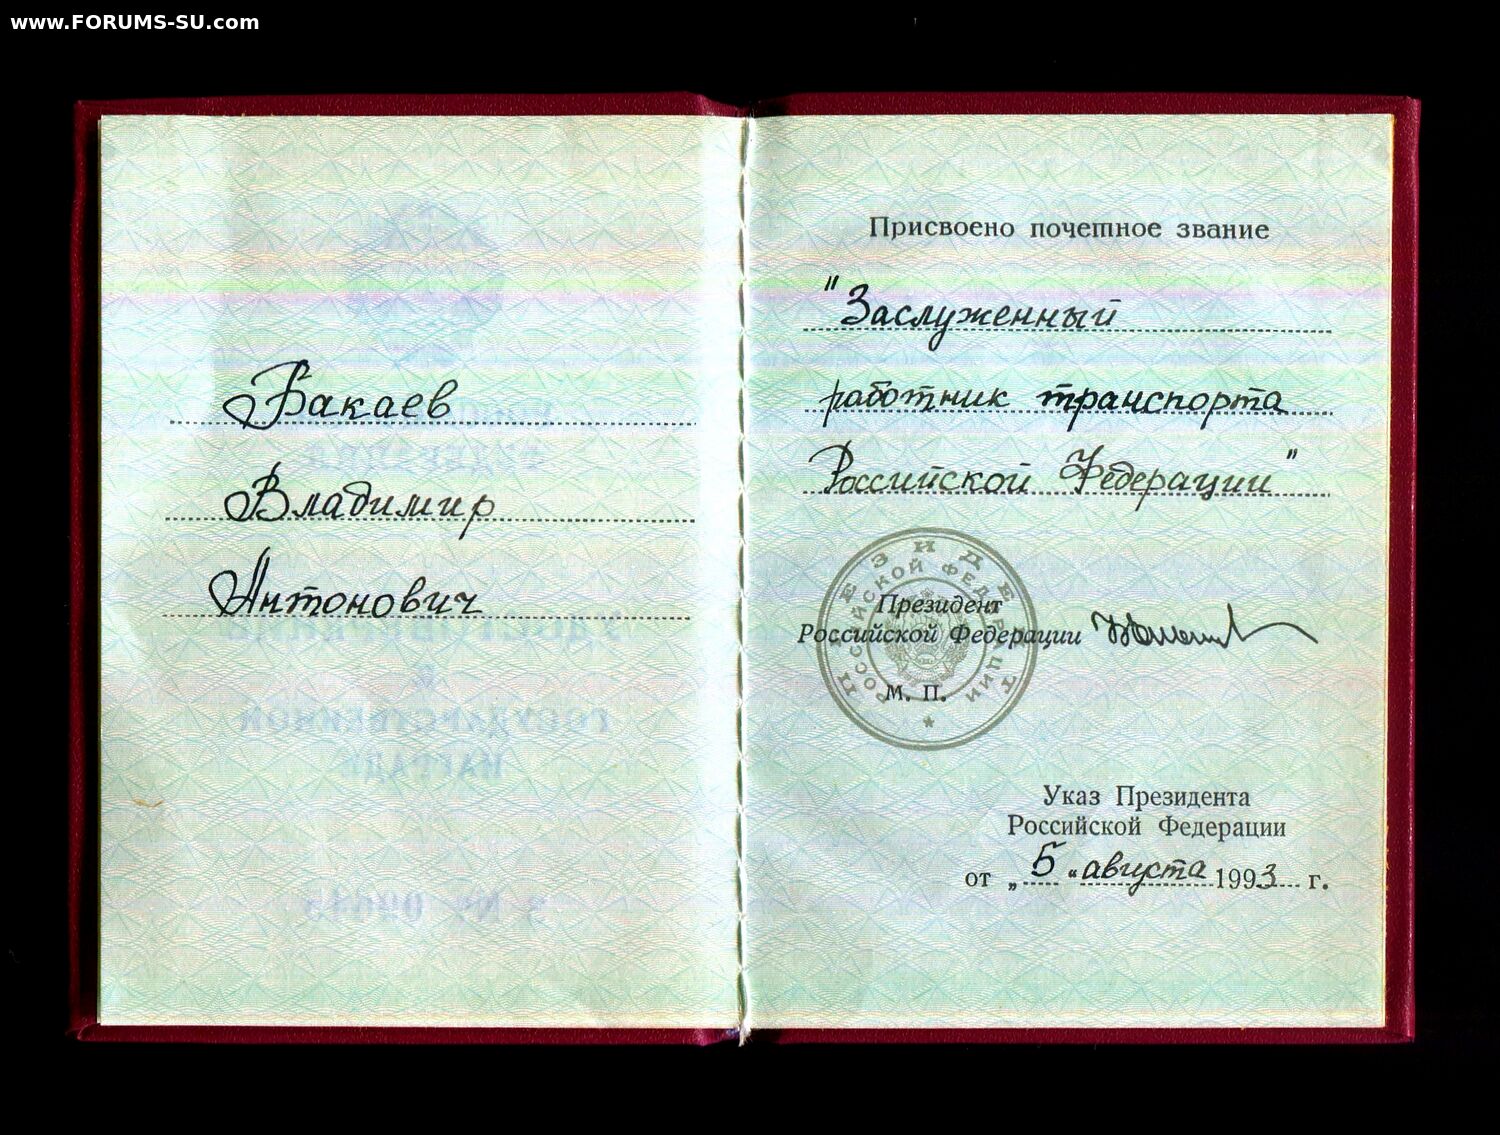 www.FORUMS-SU.com
Бакаев
Владимир
Антонович
Присвоено почетное звание
"Заслуженный
работник транспорта
Российской Федерации"
ПРЕЗИДЕНТ
РОССИЙСКОЙ ФЕДЕРАЦИИ
Президент
Российской Федерации
М. П.
Указ Президента
Российской Федерации
от „5“ августа 1993 г.